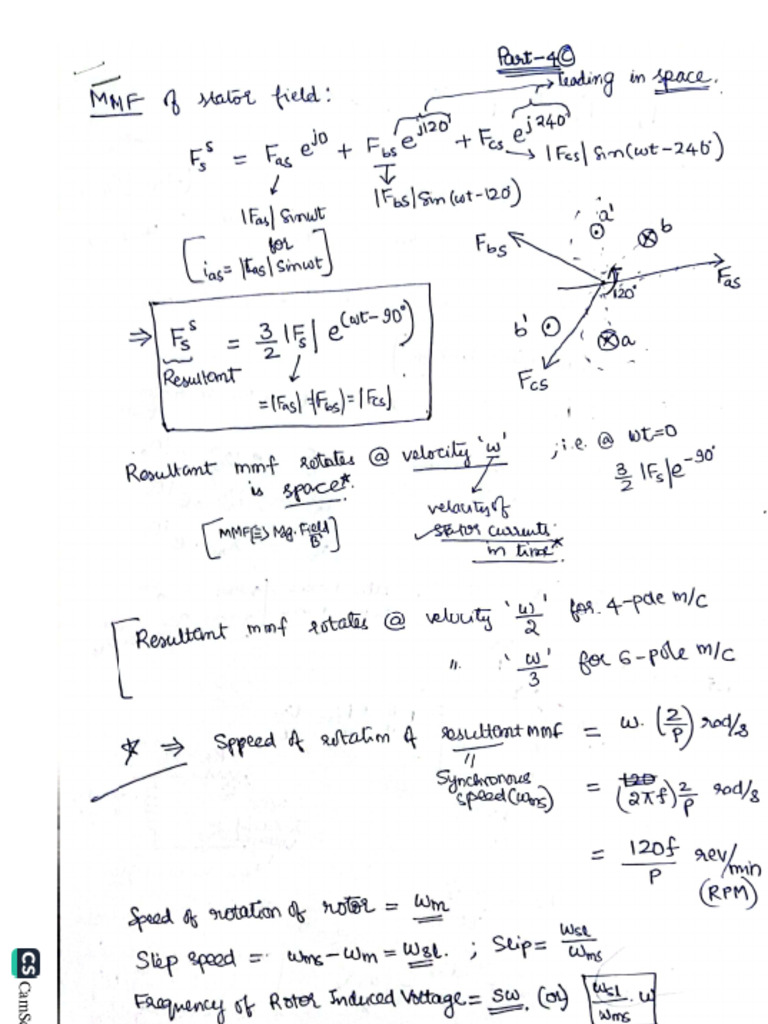 Part-4(C)
MMF of stator field:
→ leading in space.
F_s^s = F_as e^j0 + F_bs e^j120° + F_cs e^j240°
→ |Fcs| sin(ωt-240°)
|Fbs| sin(ωt-120°)
|Fas| Sinωt
for
[ias = |Ias| Sinωt]
a'
b
Fbs
Fas
120°
b'
a
Fcs
⇒ F_s^s = 3/2 |Fs| e^(ωt-90°)
Resultant
= |Fas| = |Fbs| = |Fcs|
Resultant mmf rotates @ velocity 'ω' ; i.e. @ ωt=0
is space*.
3/2 |Fs| e^-90°
velocity of
stator currents
in time*.
[MMF(≡) Mg. Field B]
Resultant mmf rotates @ velocity 'ω/2' for 4-pole m/c
" 'ω/3' for 6-pole m/c
* ⇒ Sppeed of rotation of resultant mmf = ω. (2/P) rad/s
Synchronous
speed (ωms)
= (2πf) 2/P rad/s
= 120f/P rev/min
(RPM)
Speed of rotation of rotor = ωm
Slip speed = ωms - ωm = ωsl. ; Slip = ωsl/ωms
Frequency of Rotor Induced Voltage = sω. (or) ωsl/ωms . ω
CS CamSc